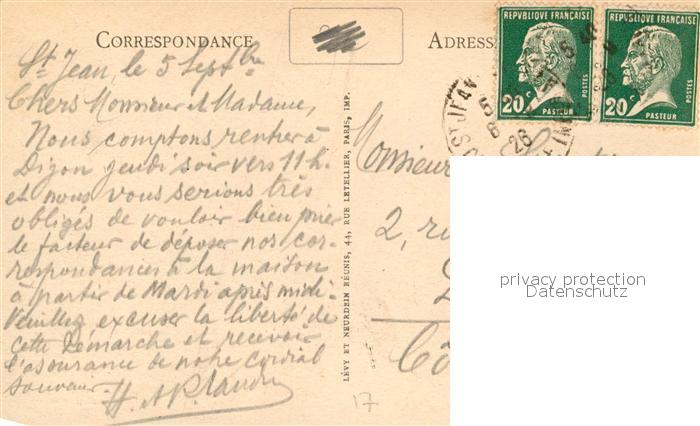 CORRESPONDANCE
ADRESSE
St Jean, le 5 Septbre
Chers Monsieur et Madame,
Nous comptons rentrer à
Dijon jeudi soir vers 11 h.
et nous vous serions très
obligés de vouloir bien prier
le facteur de déposer nos cor-
respondances à la maison
à partir de Mardi après midi.
Veuillez excuser la liberté de
cette démarche et recevoir
l'assurance de notre cordial
souvenir.
H. et P.
LÉVY ET NEURDEIN RÉUNIS, 44, RUE LETELLIER, PARIS, IMP.
REPVBLIQVE FRANÇAISE
20 c
POSTES
PASTEUR
REPVBLIQVE FRANÇAISE
20 c
POSTES
PASTEUR
ST JEAN
26
Monsieur
2, ru
Cô
17
privacy protection
Datenschutz